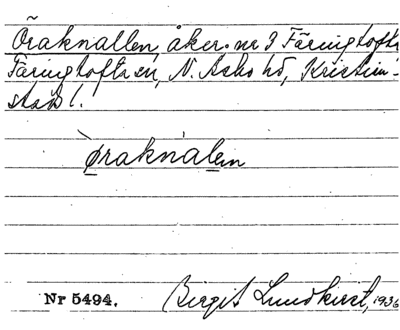 Öraknallen, åker nr 3 Färingtofta
Färingtofta sn, N. Åsbo hd, Kristian-
stads l.
öraknalen
Nr 5494. Birgit Lundkvist, 1936